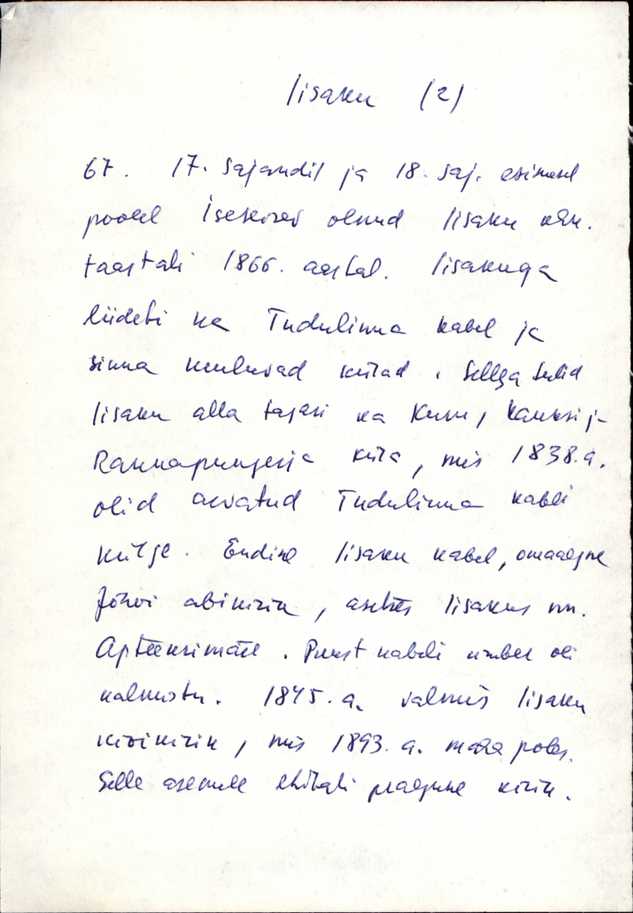 Iisaku (2)
67. 17. sajandil ja 18. saj. esimesel
poolel iseseisev olnud Iisaku khk.
taastati 1866. aastal. Iisakuga
liideti ka Tudulinna kabel ja
sinna kuuluvad külad. Sellega tulid
Iisaku alla tagasi ka Kuru, Kauksi ja
Rannapungerja küla, mis 1838.a.
olid arvatud Tudulinna kabeli
külge. Endine Iisaku kabel, omaaegne
Jõhvi abikirik, asetses Iisakus nn.
Apteekrimäel. Puust kabeli ümber oli
kalmistu. 1845.a. valmis Iisaku
kivikirik, mis 1893.a. maha põles.
Selle asemele ehitati praegune kirik.